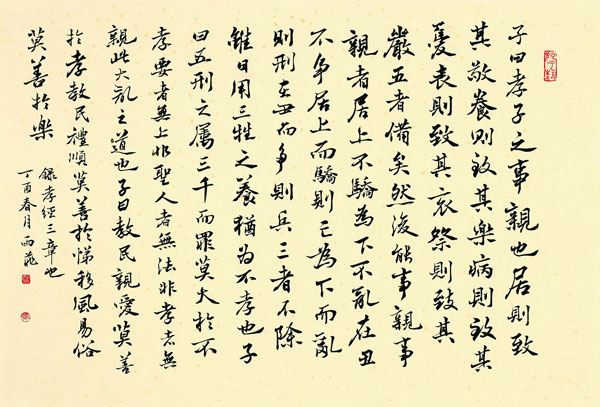 子曰孝子之事親也居則致
其敬養則致其樂病則致其
憂喪則致其哀祭則致其
嚴五者備矣然後能事親事
親者居上不驕為下不亂在丑
不爭居上而驕則亡為下而亂
則刑在丑而爭則兵三者不除
雖日用三牲之養猶為不孝也子
曰五刑之屬三千而罪莫大於不
孝要者無上非聖人者無法非孝者無
親此大亂之道也子曰教民親愛莫善
於孝教民禮順莫善於悌移風易俗
莫善於樂
錄孝經三章也
丁酉春月